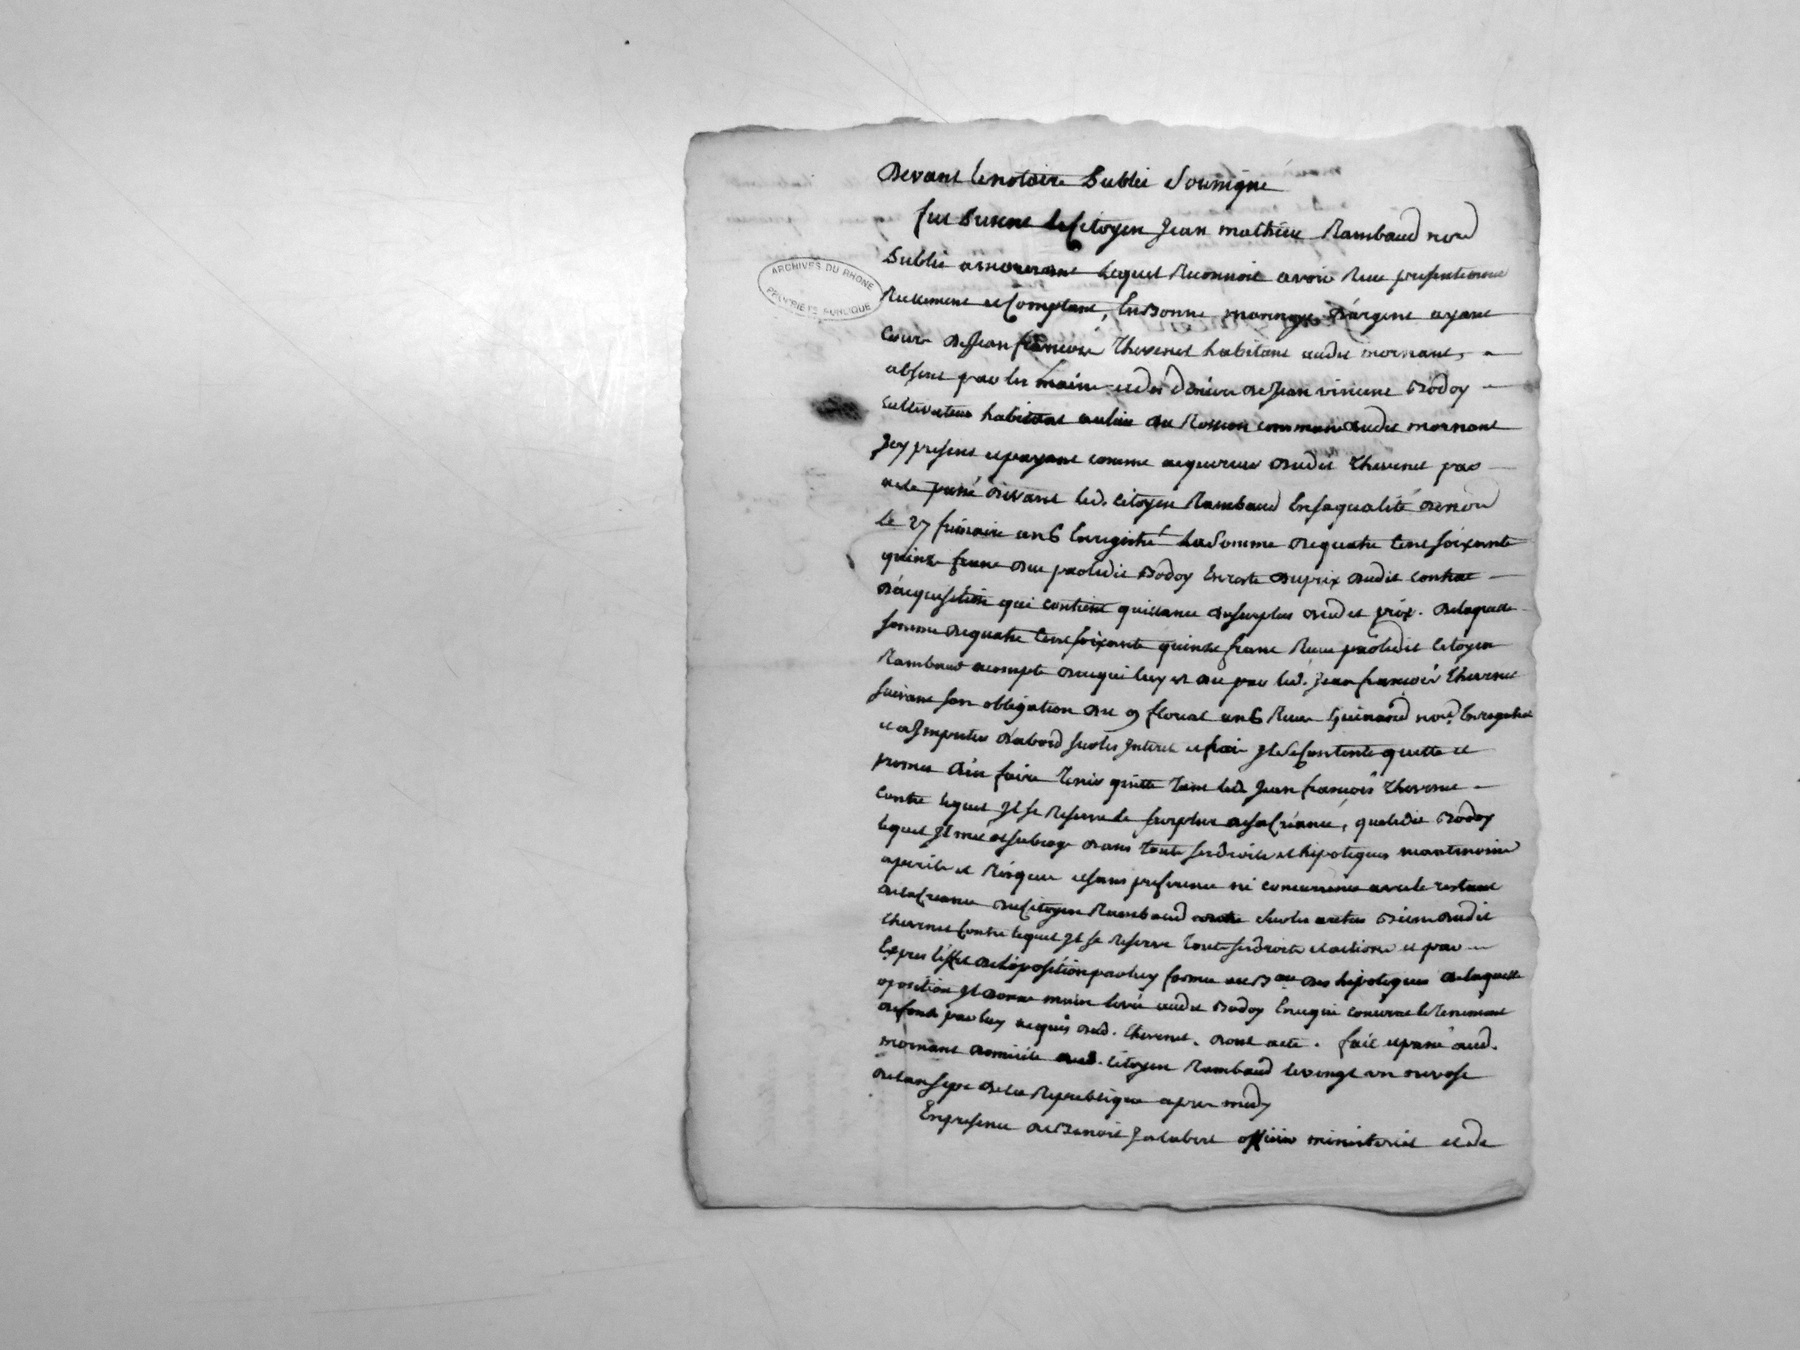 Devant le notaire Public Soussigné
fut present le Citoyen Jean mathieu Rambaud no.re
Public a mornant Lequel Reconnoit avoir Reçu presentement
Reellement et Comptant, En Bonne monnoye d'argent ayant
Cours de Jean françois Thevenet habitant audit mornant,
ARCHIVES DU RHONE
PROPRIETE PUBLIQUE
absent par les mains et des deniers de Jean vincent Bodoy
Cultivateur habitant au lieu du Rosson commune dudit mornant
Icy present et payant comme acquereur dudit Thevenet par
acte passé devant led. Citoyen Rambaud En sa qualité de no.re
Le 27 frimaire an 6 Enregistré La Somme de quatre Cent soixante
quinze francs due par ledit Bodoy En reste du prix dudit contrat
d'acquisition qui contient quittance du surplus dudit prix. De laquelle
somme de quatre Cent soixante quinze francs Reçue par ledit Citoyen
Rambaud a compte de ce qui luy est du par led. Jean françois Thevenet
suivant son obligation du 9 floreal an 6 Reçue Guinand no.re Enregistré
et a Imputer d'abord sur les Interets et frais Il se Contente quitte et
promet d'en faire Tenir quitte Tant led. Jean françois Thevenet
Contre lequel Il se Reserve le surplus de sa Créance, que ledit Bodoy
lequel Il met et subroge dans Touts ses droits et hipoteques neantmoins
a perils et Risques et sans preference ni concurrence avec le restant
de la Creance du Citoyen Rambaud sur les autres Biens dudit
Thevenet Contre lequel Il se Reserve Touts ses droits et actions et par
Exprès l'effet de l'oposition par luy formée au B.au des hipoteques de laquelle
oposition Il donne main levée audit Bodoy En ce qui concerne le Tenement
de fonds par luy acquis dud. Thevenet. Dont acte. fait et passé aud.
mornant domicile dud. Citoyen Rambaud le vingt un nivose
de l'an sept de la Republique apres midy
En presence de Benoit Jalabert officier ministeriel et de